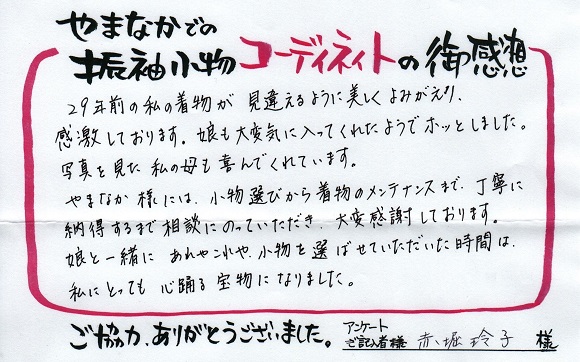 やまなかでの
振袖小物コーディネイトの御感想
29年前の私の着物が見違えるように美しくよみがえり、
感激しております。娘も大変気に入ってくれたようでホッとしました。
写真を見た私の母も喜んでくれています。
やまなか様には、小物選びから着物のメンテナンスまで、丁寧に
納得するまで相談にのっていただき、大変感謝しております。
娘と一緒にあれやこれや、小物を選ばせていただいた時間は、
私にとっても心踊る宝物になりました。
ご協力、ありがとうございました。
アンケート
ご記入者様 赤堀玲子 様